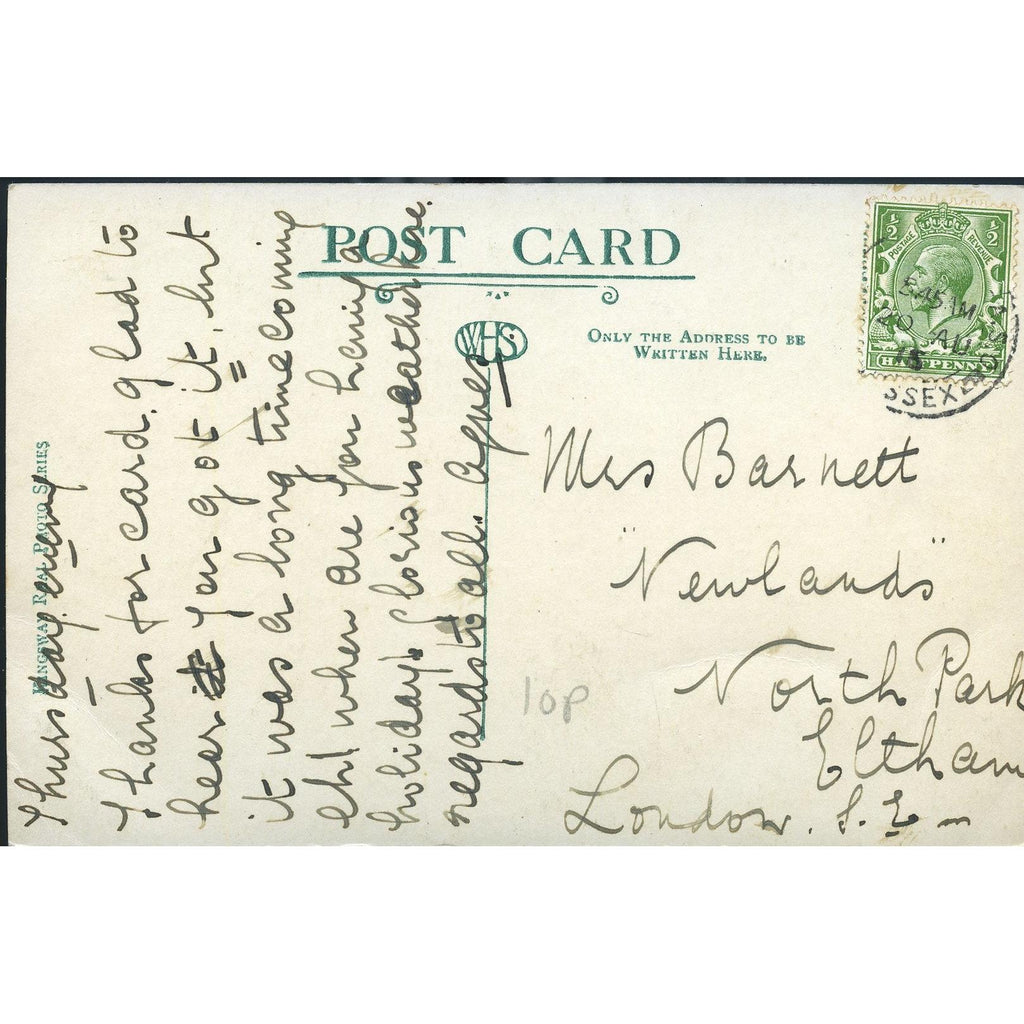 POST CARD
WHS
ONLY THE ADDRESS TO BE
WRITTEN HERE.
KINGSWAY REAL PHOTO SERIES
Thursday evening
Thanks for card. glad to
hear it you got it, but
it was a long time coming
eh! when are you having
holiday. Glorious weather here.
regards to all. Agnes
Mrs Barnett
"Newlands"
North Park
Eltham
London. S.E
10P
½ ½
POSTAGE REVENUE
HALFPENNY
5.45 AM
20 AU
15
SSEX